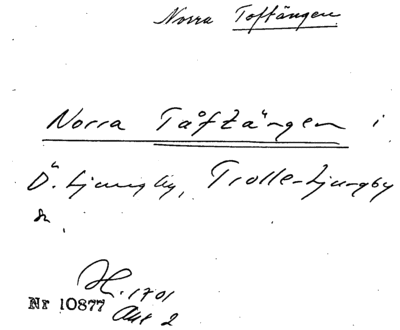 Norra Toftängen
Norra Tåftängen i
Ö. Ljungby, Trolle-Ljungby
sn.
H. 1701
Nr 10877 Akt 2